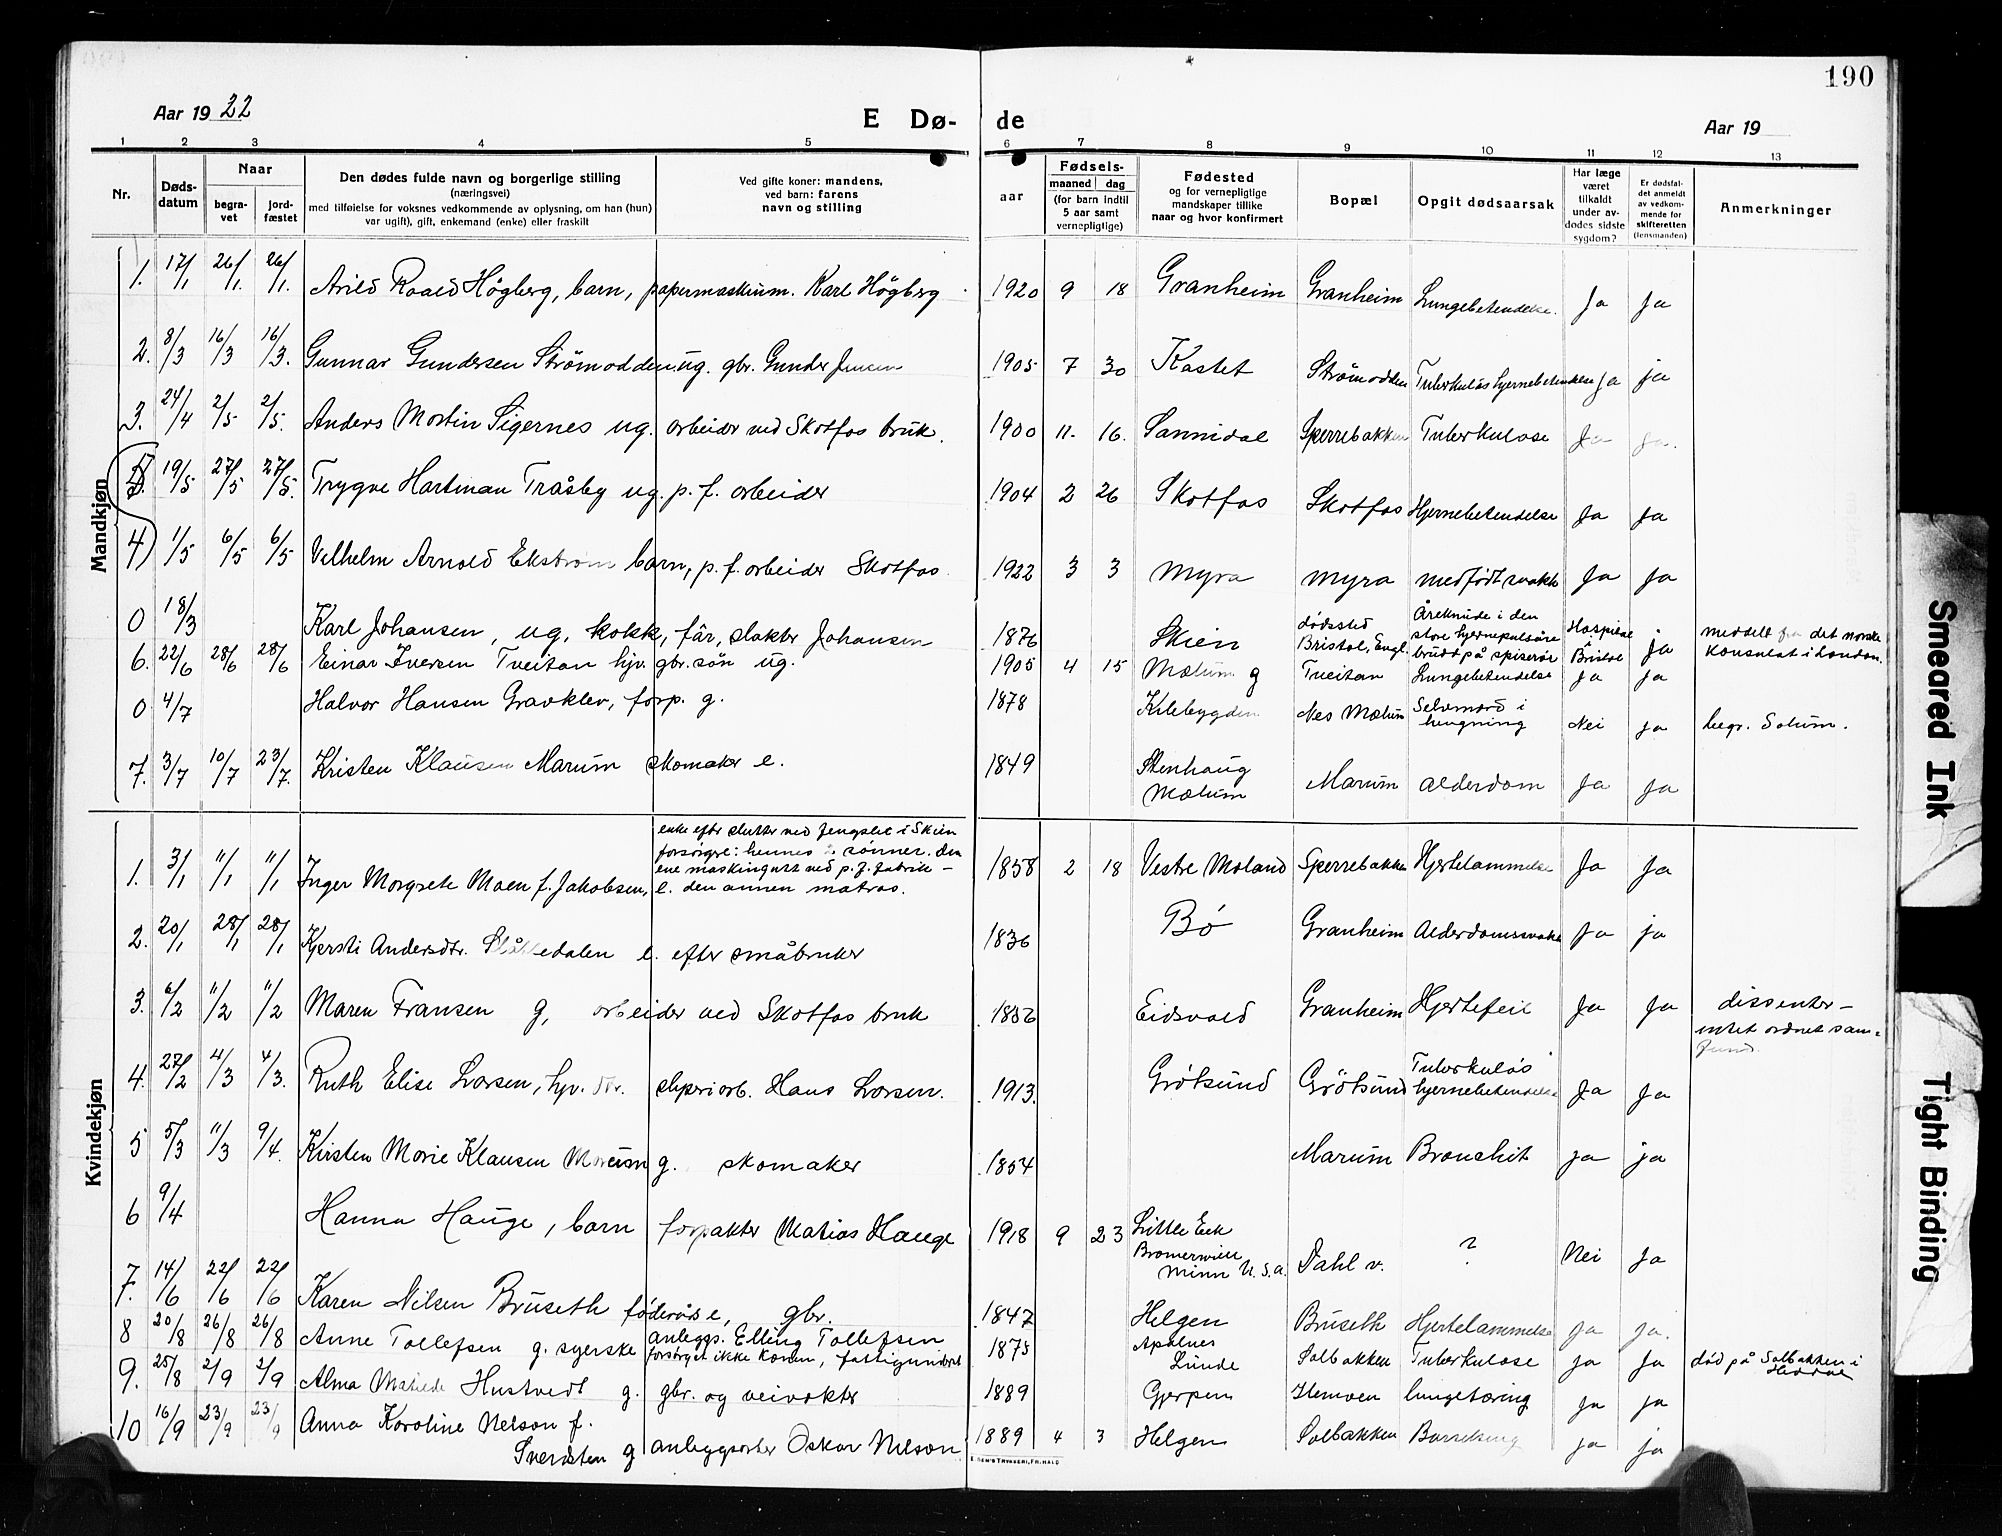 190
Aar 1922
E Dø- de
Aar 19
1 2 3 4 5 6 7 8 9 10 11 12 13
Nr.
Døds-
datum
Naar
begra-
vet
jord-
fæstet
Den dødes fulde navn og borgerlige stilling
(næringsvei)
med tilføielse for voksnes vedkommende av oplysning, om han (hun)
var ugift), gift, enkemand (enke) eller fraskilt
Ved gifte koner: mandens,
ved barn: farens
navn og stilling
aar
Fødsels-
maaned dag
(for barn indtil
5 aar samt
vernepligtige)
Fødested
og for vernepligtige
mandskaper tillike
naar og hvor konfirmert
Bopæl
Opgit dødsaarsak
Har læge
været
tilkaldt
under av-
dødes sidste
sygdom?
Er dødsfal-
det anmeldt
av vedkom-
mende for
skifteretten
(lensmanden)
Anmerkninger
Mandkjøn
1. 17/1 26/1. 26/1. Arild Roald Högberg, barn, papermaskinm. Karl Högberg 1920 9 18 Granheim Granheim Lungebetendelse. Ja Ja
2. 8/3 16/3 16/3. Gunnar Gundersen Strømodden ug. gbr. Gunder Jensen 1905 7 30 Kastet Strømodden Tuberkuløs hjernebetendelse Ja ja
3. 24/4 2/5 2/5. Anders Martin Sigernes ug. arbeider ved Skotfos bruk. 1900 11. 16. Sannidal Sperrebakken Tuberkulose Ja ja.
5. 19/5 27/5 27/5. Trygve Hartman Tråsby ug. p. f. arbeider 1904 2 26 Skotfos Skotfos Hjernebetendelse Ja Ja
4 1/5 6/5 6/5 Vilhelm Arnold Ekstrøm barn, p. f. arbeider Skotfos. 1922 3 3 Myra Myra medfødt svakh Ja Ja
0 18/3 Karl Johansen, ug, kokk, får, slakter Johansen 1876 Skien
dødssted
Bristol, Engl.
Åreknude i den
store hjernepulsåre
brudd på spiserør
Hospital
Bristol
ja
meddelt fra det norske
konsulat i London.
6. 22/6 28/6 28/6 Einar Iversen Tveitan hjv. gbr. søn ug. 1905 4 15 Mælum g Tveitan Lungebetendelse Ja Ja
0 4/7 Halvor Hansen Gravklev, forp. g. 1878 Kilebygden Nes Mælum
Selvmord i
hengning
Nei ja begr. Solum.
7. 3/7 10/7 23/7. Kristen Klausen Marum skomaker e. 1849
Stenhaug
Mælum
Marum Alderdom Ja Ja
Kvindekjøn
1. 3/1 11/1 11/1 Inger Margrete Moen f. Jakobsen,
enke efter slutter ved fengslet i Skien
forsørget: hennes 2 sønner. den
ene maskingutt ved p. f. fabrik –
e. den annen matros.
1858 2 18 Vestre Moland Sperrebakken Hjertelammelse Ja Ja
2. 20/1 28/1 28/1 Kjersti Andersdtr. e. efter småbruker 1836 Bø Granheim Alderdomssvake Ja ja
3. 6/2 11/2 11/2 Maren Fransen g, arbeider ved Skotfos bruk Eidsvold Granheim Hjertefeil Ja Ja
dissenter –
intet ordnet sam-
fund.
4. 27/2 4/3 4/3. Ruth Elise Larsen, hjv. dtr. sliperiarb. Hans Larsen. 1913. Grøtsund Grøtsund
Tuberkuløs
hjernebetendelse
Ja Ja
5 5/3 11/3 9/4. Kirsten Marie Klausen Marum g. skomaker 1854 Marum Bronchit ja ja
6 9/4 Hanna Hauge, barn forpakter Matias Hauge 1918 9 23
Little Eck
Minn U.S.A.
Dahl v. ? Nei Ja
7. 14/6 22/6 22/6 Karen Nilsen Bruseth føderåds e, gbr. 1847 Helgen Bruseth Hjertelammelse ja ja.
8 20/8 26/8 26/8 Anne Tollefsen g. syerske
anleggs. Elling Tollefsen
forsørget ikke konen, fattigunderst
1875
Apalnes
Lunde
Solbakken Tuberkulose ja Ja
død på Solbakken i
9. 25/8 2/9 2/9 Alma Matilde Hustvedt g. gbr. og veivokter 1889 Gjerpen Hemoen lungetæring ja ja
10 16/9 23/9 23/9 Anna Karoline Nelson f.
Sverdsten g anleggsarber Oskar Nelson 1889 4 3 Helgen Solbakken ja ja
Smeared Ink
Tight Binding